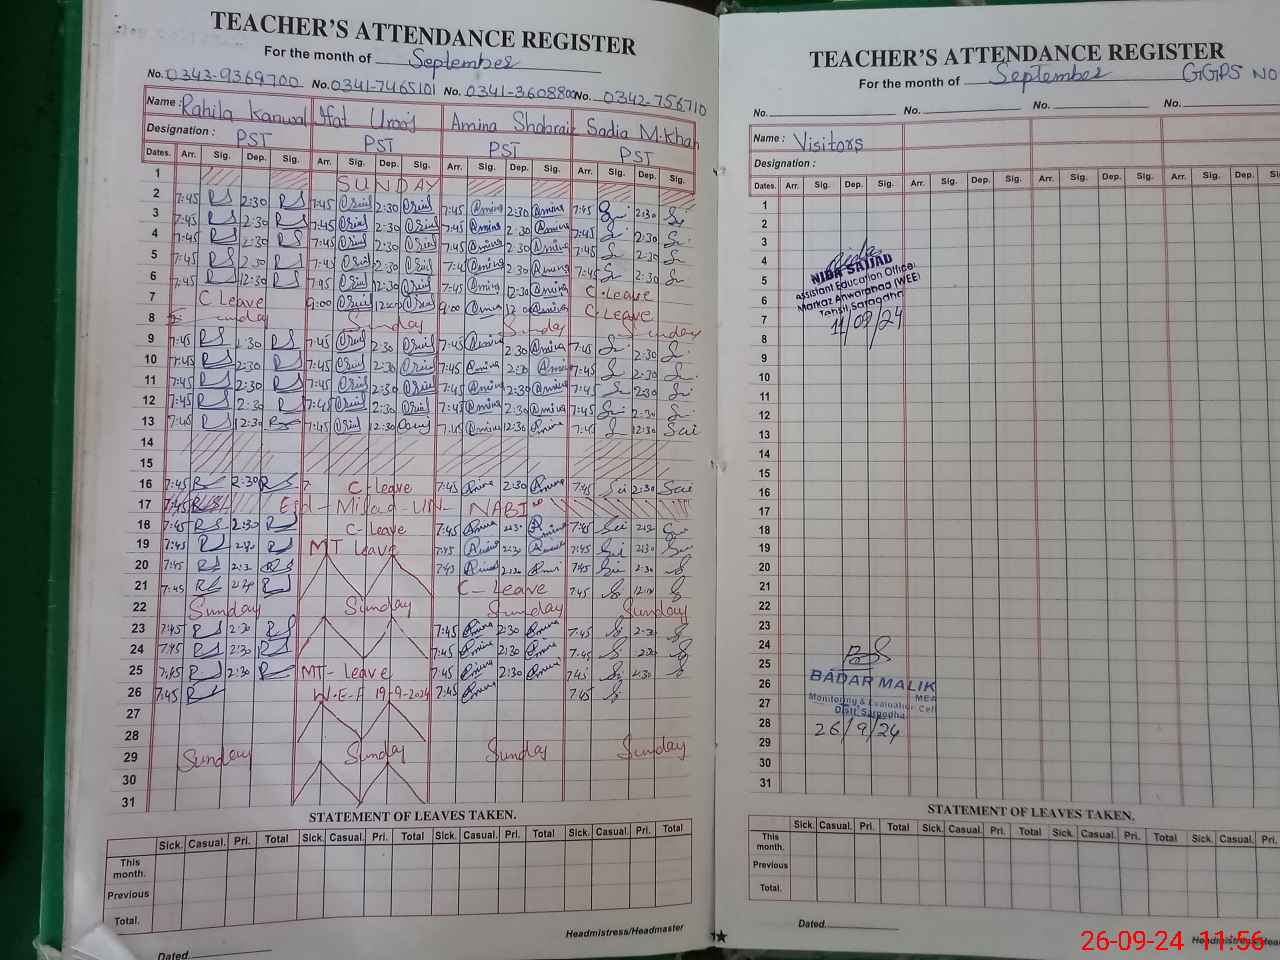 TEACHER'S ATTENDANCE REGISTER
For the month of September
No. 0343-9369700 No. 0341-7465101 No. 0341-3608800 No. 0342-756710
Name : Rahila Kanwal Ifat Urooj Amina Shabrair Sadia M.Khan
Designation : PST PST PST PST
Dates. Arr. Sig. Dep. Sig. Arr. Sig. Dep. Sig. Arr. Sig. Dep. Sig. Arr. Sig. Dep. Sig.
1 SUNDAY
2 7:45 RS 2:30 RS 7:45 2:30 7:45 Amina 2:30 Amina 7:45 2:30
3 7:45 RS 2:30 RS 7:45 2:30 7:45 Amina 2:30 Amina 7:45
4 7:45 RS 2:30 RS 7:45 2:30 7:45 Amina 2:30 Amina 7:45 2:30
5 7:45 RS 2:30 RS 7:45 2:30 7:45 Amina 2:30 Amina 7:45 2:30
6 7:45 RS 12:30 RS 7:45 12:30 7:45 Amina 12:30 Amina C.Leave
7 C Leave 9:00 12:00 9:00 Amina 12:00 Amina C.Leave
8 Sunday Sunday Sunday Sunday
9 7:45 RS 2:30 RS 7:45 2:30 7:45 Amina 2:30 Amina 7:45 2:30
10 7:45 RS 2:30 RS 7:45 2:30 7:45 Amina 2:30 Amina 7:45 2:30
11 7:45 RS 2:30 RS 7:45 2:30 7:45 Amina 2:30 Amina 7:45 2:30
12 7:45 RS 2:30 RS 7:45 2:30 7:45 Amina 2:30 Amina 7:45 2:30
13 7:45 RS 12:30 RS 7:45 12:30 7:45 Amina 12:30 Amina 7:45 12:30
14
15
16 7:45 RS 2:30 RS 7: C-leave 7:45 Amina 2:30 Amina 7:45 2:30
17 7:45 Eid-Milad-UN-NABI
18 7:45 RS 2:30 RS C-leave 7:45 Amina 2:30 Amina 7:45
19 7:45 RS RS MT Leave 7:45 Amina 2:30 Amina 7:45 2:30
20 7:45 RS 2:30 RS 7:45 Amina 2:30 7:45 2:30
21 7:45 RS RS C-Leave 7:45
22 Sunday Sunday Sunday Sunday
23 7:45 RS 2:30 RS 7:45 Amina 2:30 Amina 7:45 2:30
24 7:45 RS 2:30 RS 7:45 Amina 2:30 Amina 7:45 2:30
25 7:45 RS 2:30 RS MT-Leave 7:45 Amina 2:30 Amina 7:45 2:30
26 7:45 RS W.E.F 19-9-2024 7:45 Amina 7:45
27
28
29 Sunday Sunday Sunday Sunday
30
31
STATEMENT OF LEAVES TAKEN.
Sick. Casual. Pri. Total Sick. Casual. Pri. Total Sick. Casual. Pri. Total Sick. Casual. Pri. Total
This month.
Previous
Total.
Headmistress/Headmaster
Dated
TEACHER'S ATTENDANCE REGISTER
For the month of September GGPS NO
No. No. No. No.
Name : Visitors
Designation :
Dates. Arr. Sig. Dep. Sig. Arr. Sig. Dep. Sig. Arr. Sig. Dep. Sig. Arr. Sig. Dep.
1
2
3
4
NIBA SAJJAD
5
Assistant Education Officer
6
Markaz Anwarabad (WEE)
Tehsil Sargodha
7
11/09/24
8
9
10
11
12
13
14
15
16
17
18
19
20
21
22
23
24
25
BADAR MALIK
26
MEA
27
Monitoring & Evaluation Cell
Distt Sargodha
28
26/9/24
29
30
31
STATEMENT OF LEAVES TAKEN.
Sick. Casual. Pri. Total Sick. Casual. Pri. Total Sick. Casual. Pri. Total Sick. Casual. Pri.
This month.
Previous
Total.
Dated
26-09-24 11:56